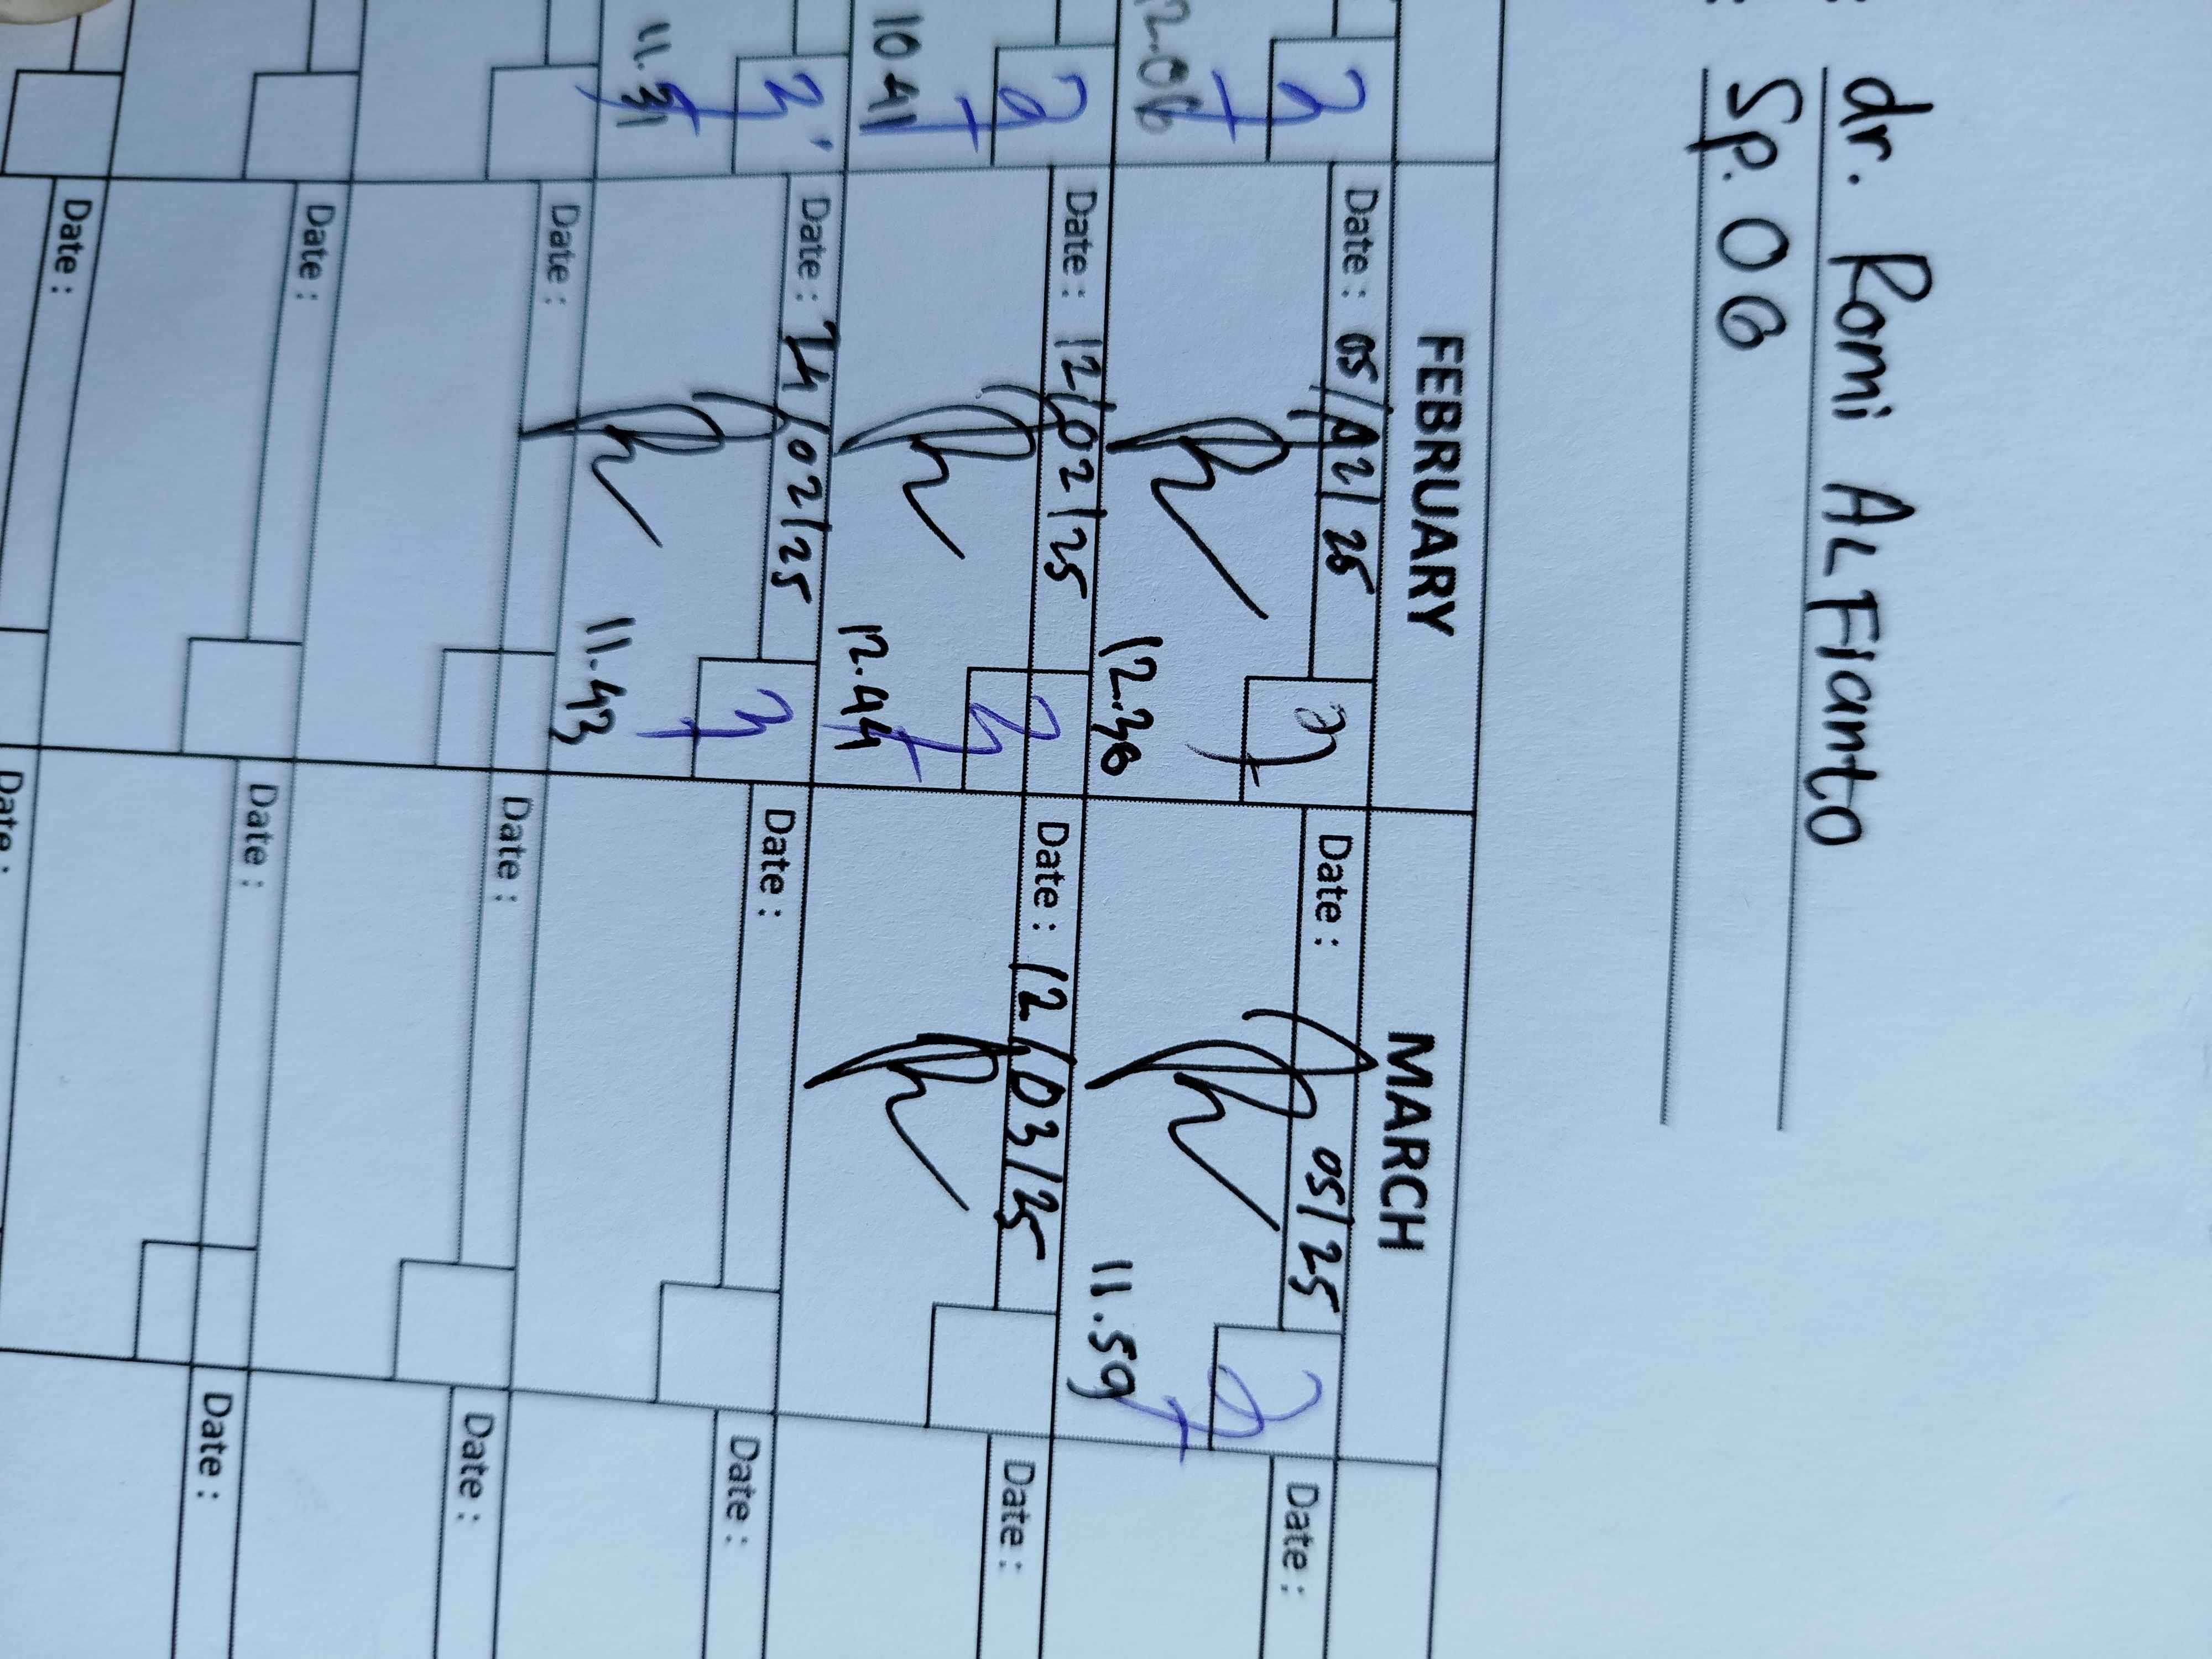 : dr. Romi ALFianto
: Sp. OG
FEBRUARY MARCH
Date : 05/02/25 Date : 05/25 Date :
12.06 12.36 11.59
Date : 12/02/25 Date : 12/03/25 Date :
10.41 12.44
Date : 24/02/25 Date : Date :
11.31 11.43
Date : Date : Date :
Date : Date : Date :
Date : Date :